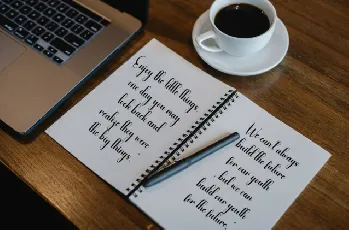 Enjoy the little things
one day you may
look back and
realize they were
the big things.
We can't always
build the future
for our youth
- but we can
build our youth
for the future.